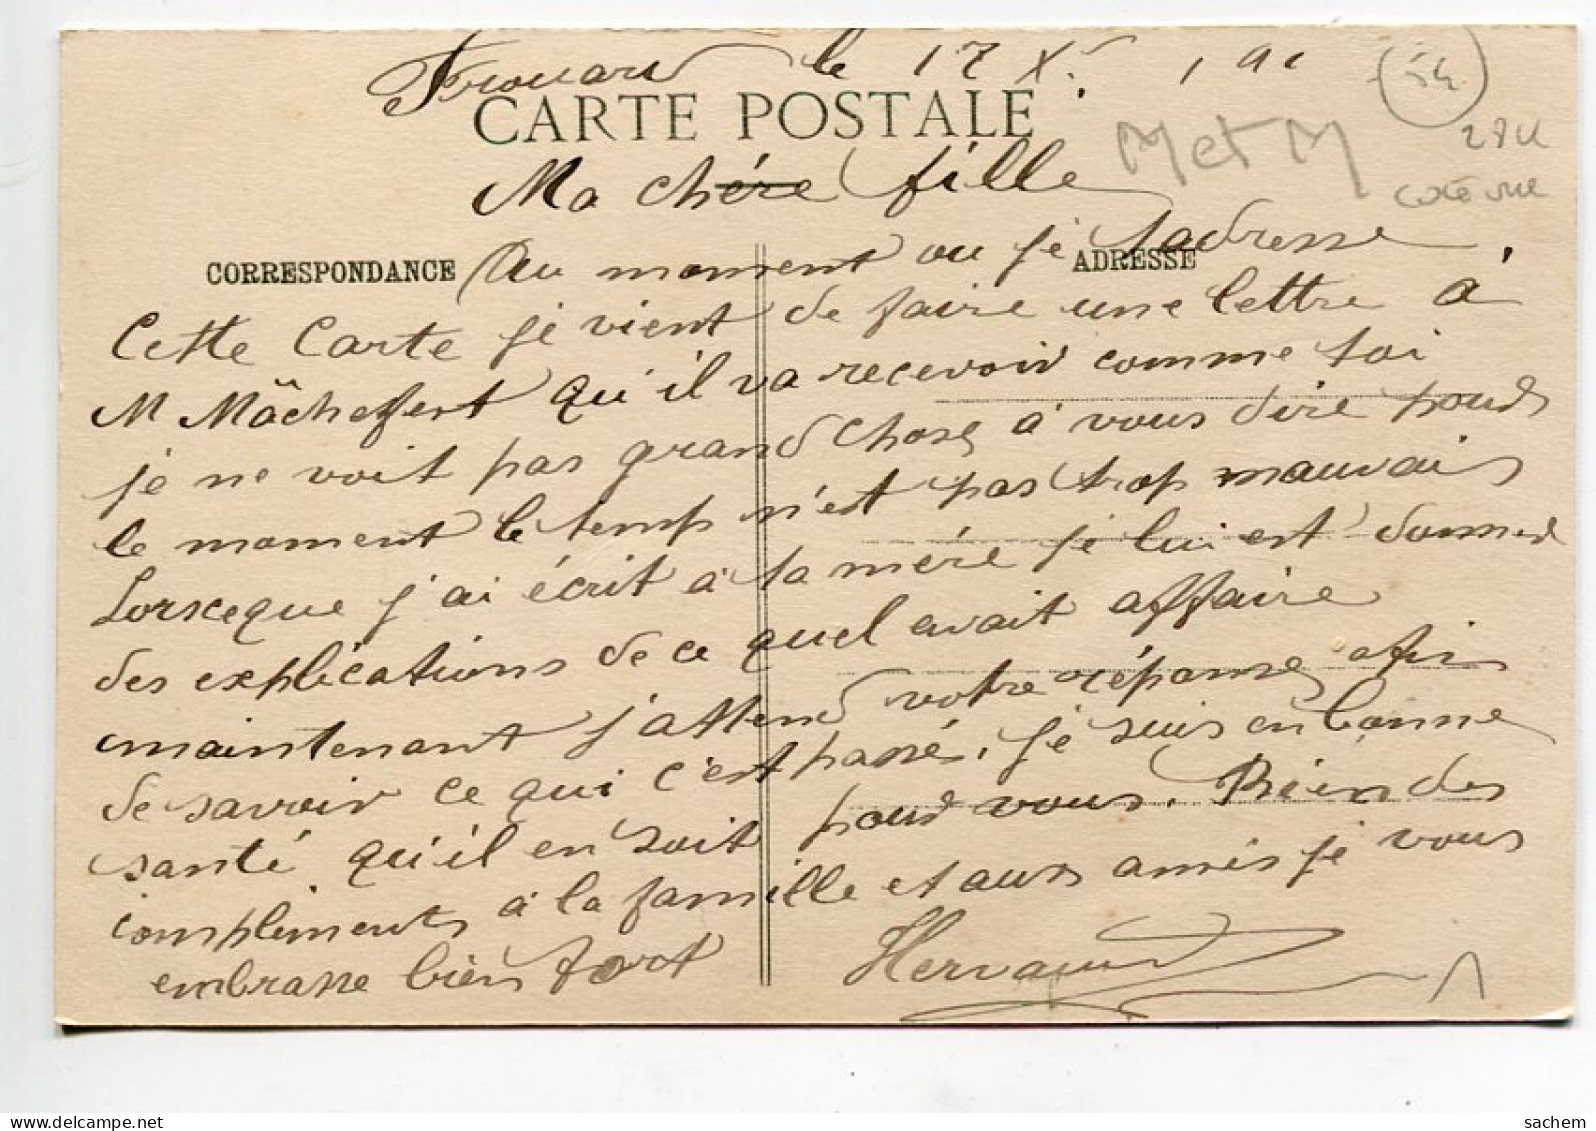 Frouard le 17 X. 191
54
CARTE POSTALE
M et M
Ma chére fille
CORRESPONDANCE
ADRESSE
Au moment ou je tadresse
Cette Carte je vient de faire une lettre à
M Mâchefert qu'il va recevoir comme toi
je ne voit pas grand Chose à vous dire pour
le moment le temp n'est pas trop mauvais
Lorsceque j'ai écrit à ta mére je lui est donner
des explications de ce quel avait affaire
maintenant j'attend votre réponse afin
de savoir ce qui c'est passés. je suis en bonne
santé qu'il en soit pour vous. Rien des
compliments à la famille et aux amis je vous
embrasse bien fort
delcampe.net
sachem